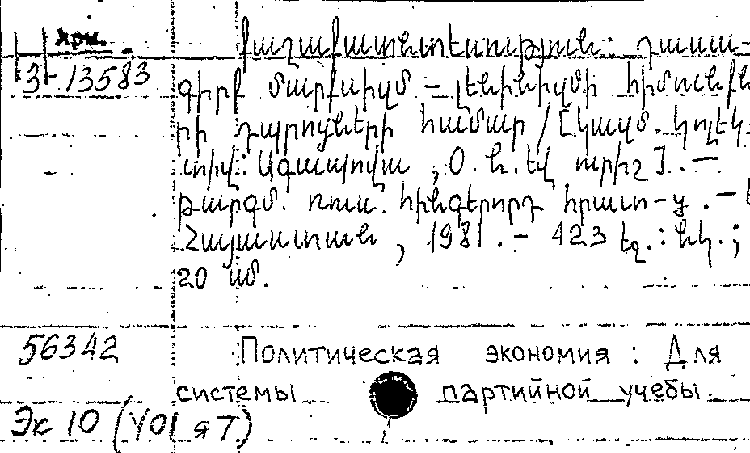 Хрм.
3-13583
Քաղաքատնտեսություն: Դասա-
գիրք մարքսիզմ.-լենինիզմի հիմունքնե-
րի դպրոցների համար / [Կազմ. կոլեկ-
տիվ: Ագապովա, Օ. Ն. եվ ուրիշ]. —
Թարգմ. ռուս. հինգերորդ հրատ-յ. —
Հայաստան, 1981. — 423 էջ.: նկ.;
20 սմ.
56342 Политическая экономия: Для
системы партийной учебы
Эк 10 (У01 я7)